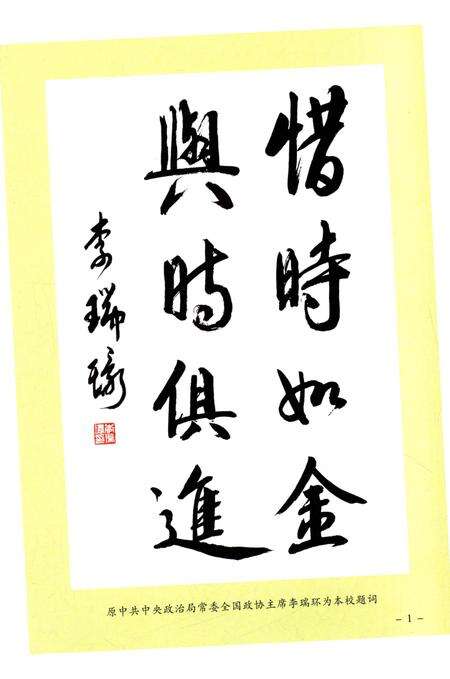 惜時如金
與時俱進
李瑞環
原中共中央政治局常委全国政协主席李瑞环为本校题词
- 1 -